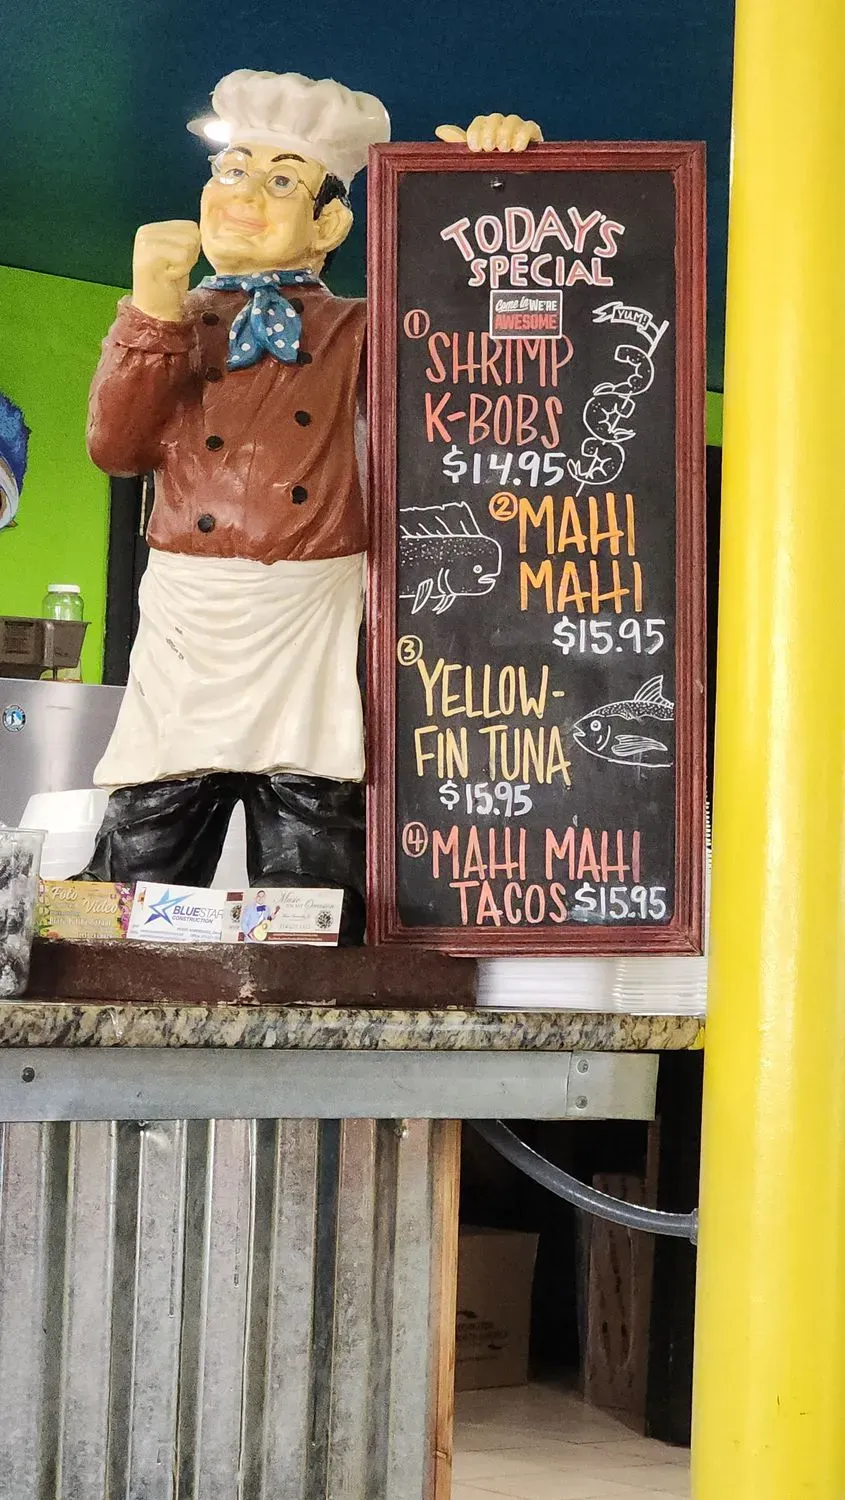 TODAY'S
SPECIAL
Come in WE'RE
AWESOME
YUM!
①
SHRIMP
K-BOBS
$14.95
② MAHI
MAHI
$15.95
③
YELLOW-
FIN TUNA
$15.95
④ MAHI MAHI
TACOS $15.95
Foto
Video
BLUESTAR
CONSTRUCTION
Music